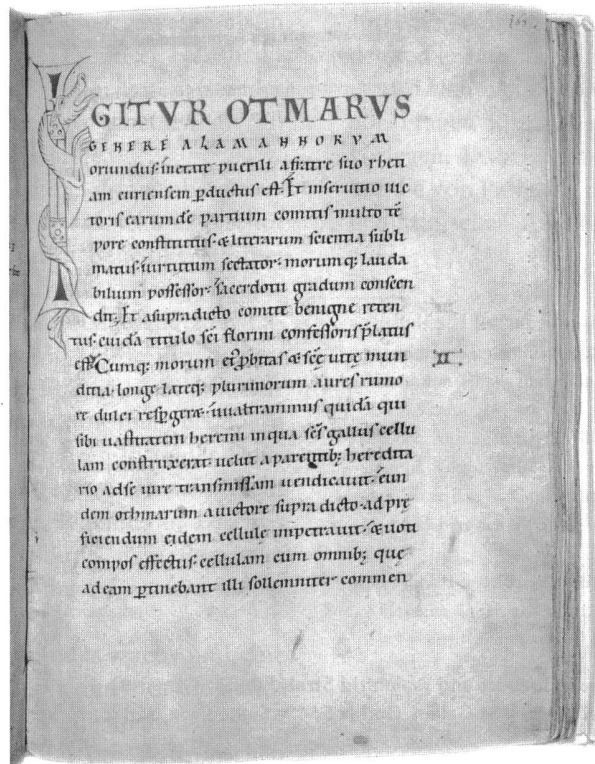 IGITVR OTMARVS
GENERE ALAMANNORVM
oriundus· inetate puerili afratre suo rheti
am curiensem pductus est· Et inseruitio uic
toris earumde partium comitis multo tē
pore constitutus· & literarum scientia subli
matus· uirtutum sectator· morumq; lauda
bilium possessor· sacerdotii gradum conscen
dit; Et asupradicto comite benigne reten
tus· cuidā titulo sc̄i florini confessoris p̄latus
est; Cumq; morum ei p̄bitas & sc̄ę uitę mun
ditia· longe lateq; plurimorum aures rumo
re dulci resp̄geret· uualtrammus quidā qui
sibi uastitatem heremi inqua sc̄s gallus cellu
lam construxerat· uelut a parentib; heredita
rio adse iure transmissam uendicauit· eun
dem othmarum a uictore supra dicto· ad prę
ficiendum eidem cellulę impetrauit· & uoti
compos effectus· cellulam cum omnib; quę
ad eam ptinebant illi sollemniter commen
II